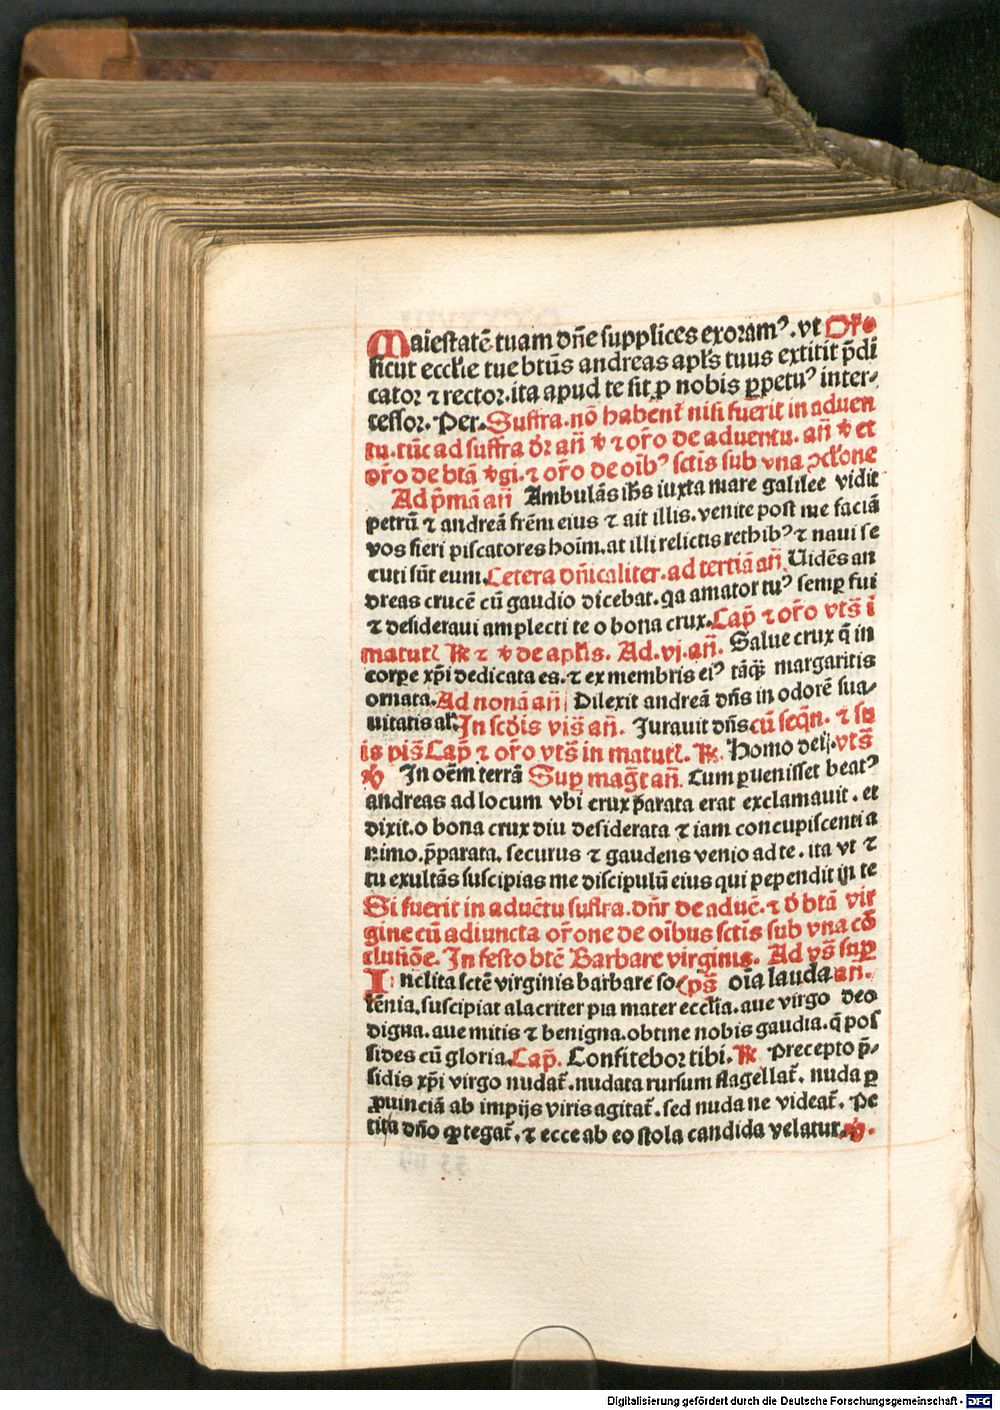 Maiestatē tuam dn̄e supplices exoramꝰ. vt Or̄o
sicut eccl̓ie tue btūs andreas apl̓s tuus extitit p̄di
cator ⁊ rector. ita apud te sit ꝓ nobis ꝑpetuꝰ inter⸗
cessor. Per. Suffra. nō habent̄ nisi fuerit in aduen
tu. tūc ad suffra dr̄ an̄ ℣ ⁊ or̄o de aduentu. an̄ ℣ et
or̄o de btā ℣gi. ⁊ or̄o de oībꝰ sctīs sub vna ꝯcl̓one
Ad p̄mā an̄ Ambulās ih̄s iuxta mare galilee vidit
petrū ⁊ andreā frēm eius ⁊ ait illis. venite post me faciā
vos fieri piscatores hoīm. at illi relictis rethibꝰ ⁊ naui se
cuti sūt eum. Cetera dn̄icaliter. ad tertiā an̄. Uidēs an
dreas crucē cū gaudio dicebat. qa amator tuꝰ semꝑ fui
⁊ desideraui amplecti te o bona crux. Cap̄ ⁊ or̄o vts̄ i
matutꝭ ℟ ⁊ ℣ de apl̓is. Ad. vj. an̄. Salue crux q̄ in
corpe xp̄i dedicata es. ⁊ ex membris eiꝰ tāq̄ꝫ margaritis
ornata. Ad nonā an̄ Dilexit andreā dn̄s in odorē sua⸗
uitatis al̓. In scd̓is vis̄ an̄. Jurauit dn̄s cū seqn̄. ⁊ sc̄
is pis̄ Cap̄ ⁊ or̄o vts̄ in matutꝭ. ℟. Homo dei. vts̄
℣ In oēm terrā Suꝑ mag̅t an̄. Cum ꝑuenisset beatꝰ
andreas ad locum vbi crux p̄arata erat exclamauit. et
dixit. o bona crux diu desiderata ⁊ iam concupiscenti a
nimo. p̄parata. securus ⁊ gaudens venio ad te. ita vt ⁊
tu exultās suscipias me discipulū eius qui pependit in te
Si fuerit in aduētu suffra. dn̄r de aduē. ⁊ d̓ btā vir
gine cū adiuncta or̄one de oībus sctīs sub vna cō
clusiōe. In festo btē Barbare virginis. Ad vs̄ suꝑ
Inclita sctē virginis barbare so⸗ (ps̄ oīa lauda an.
lēnia. suscipiat alacriter pia mater eccl̓ia. aue virgo deo
digna. aue mitis ⁊ benigna. obtine nobis gaudia. q̄ pos
sides cū gloria. Cap̄. Confitebor tibi. ℟. Precepto p̄⸗
sidis xp̄i virgo nudat̄. nudata rursum flagellat̄. nuda ꝑ
ꝓuinciā ab impijs viris agitat̄. sed nuda ne videat̄. Pe
tita dn̄o ꝓtegat̄. ⁊ ecce ab eo stola candida velatur. ℣.
Digitalisierung gefördert durch die Deutsche Forschungsgemeinschaft - DFG